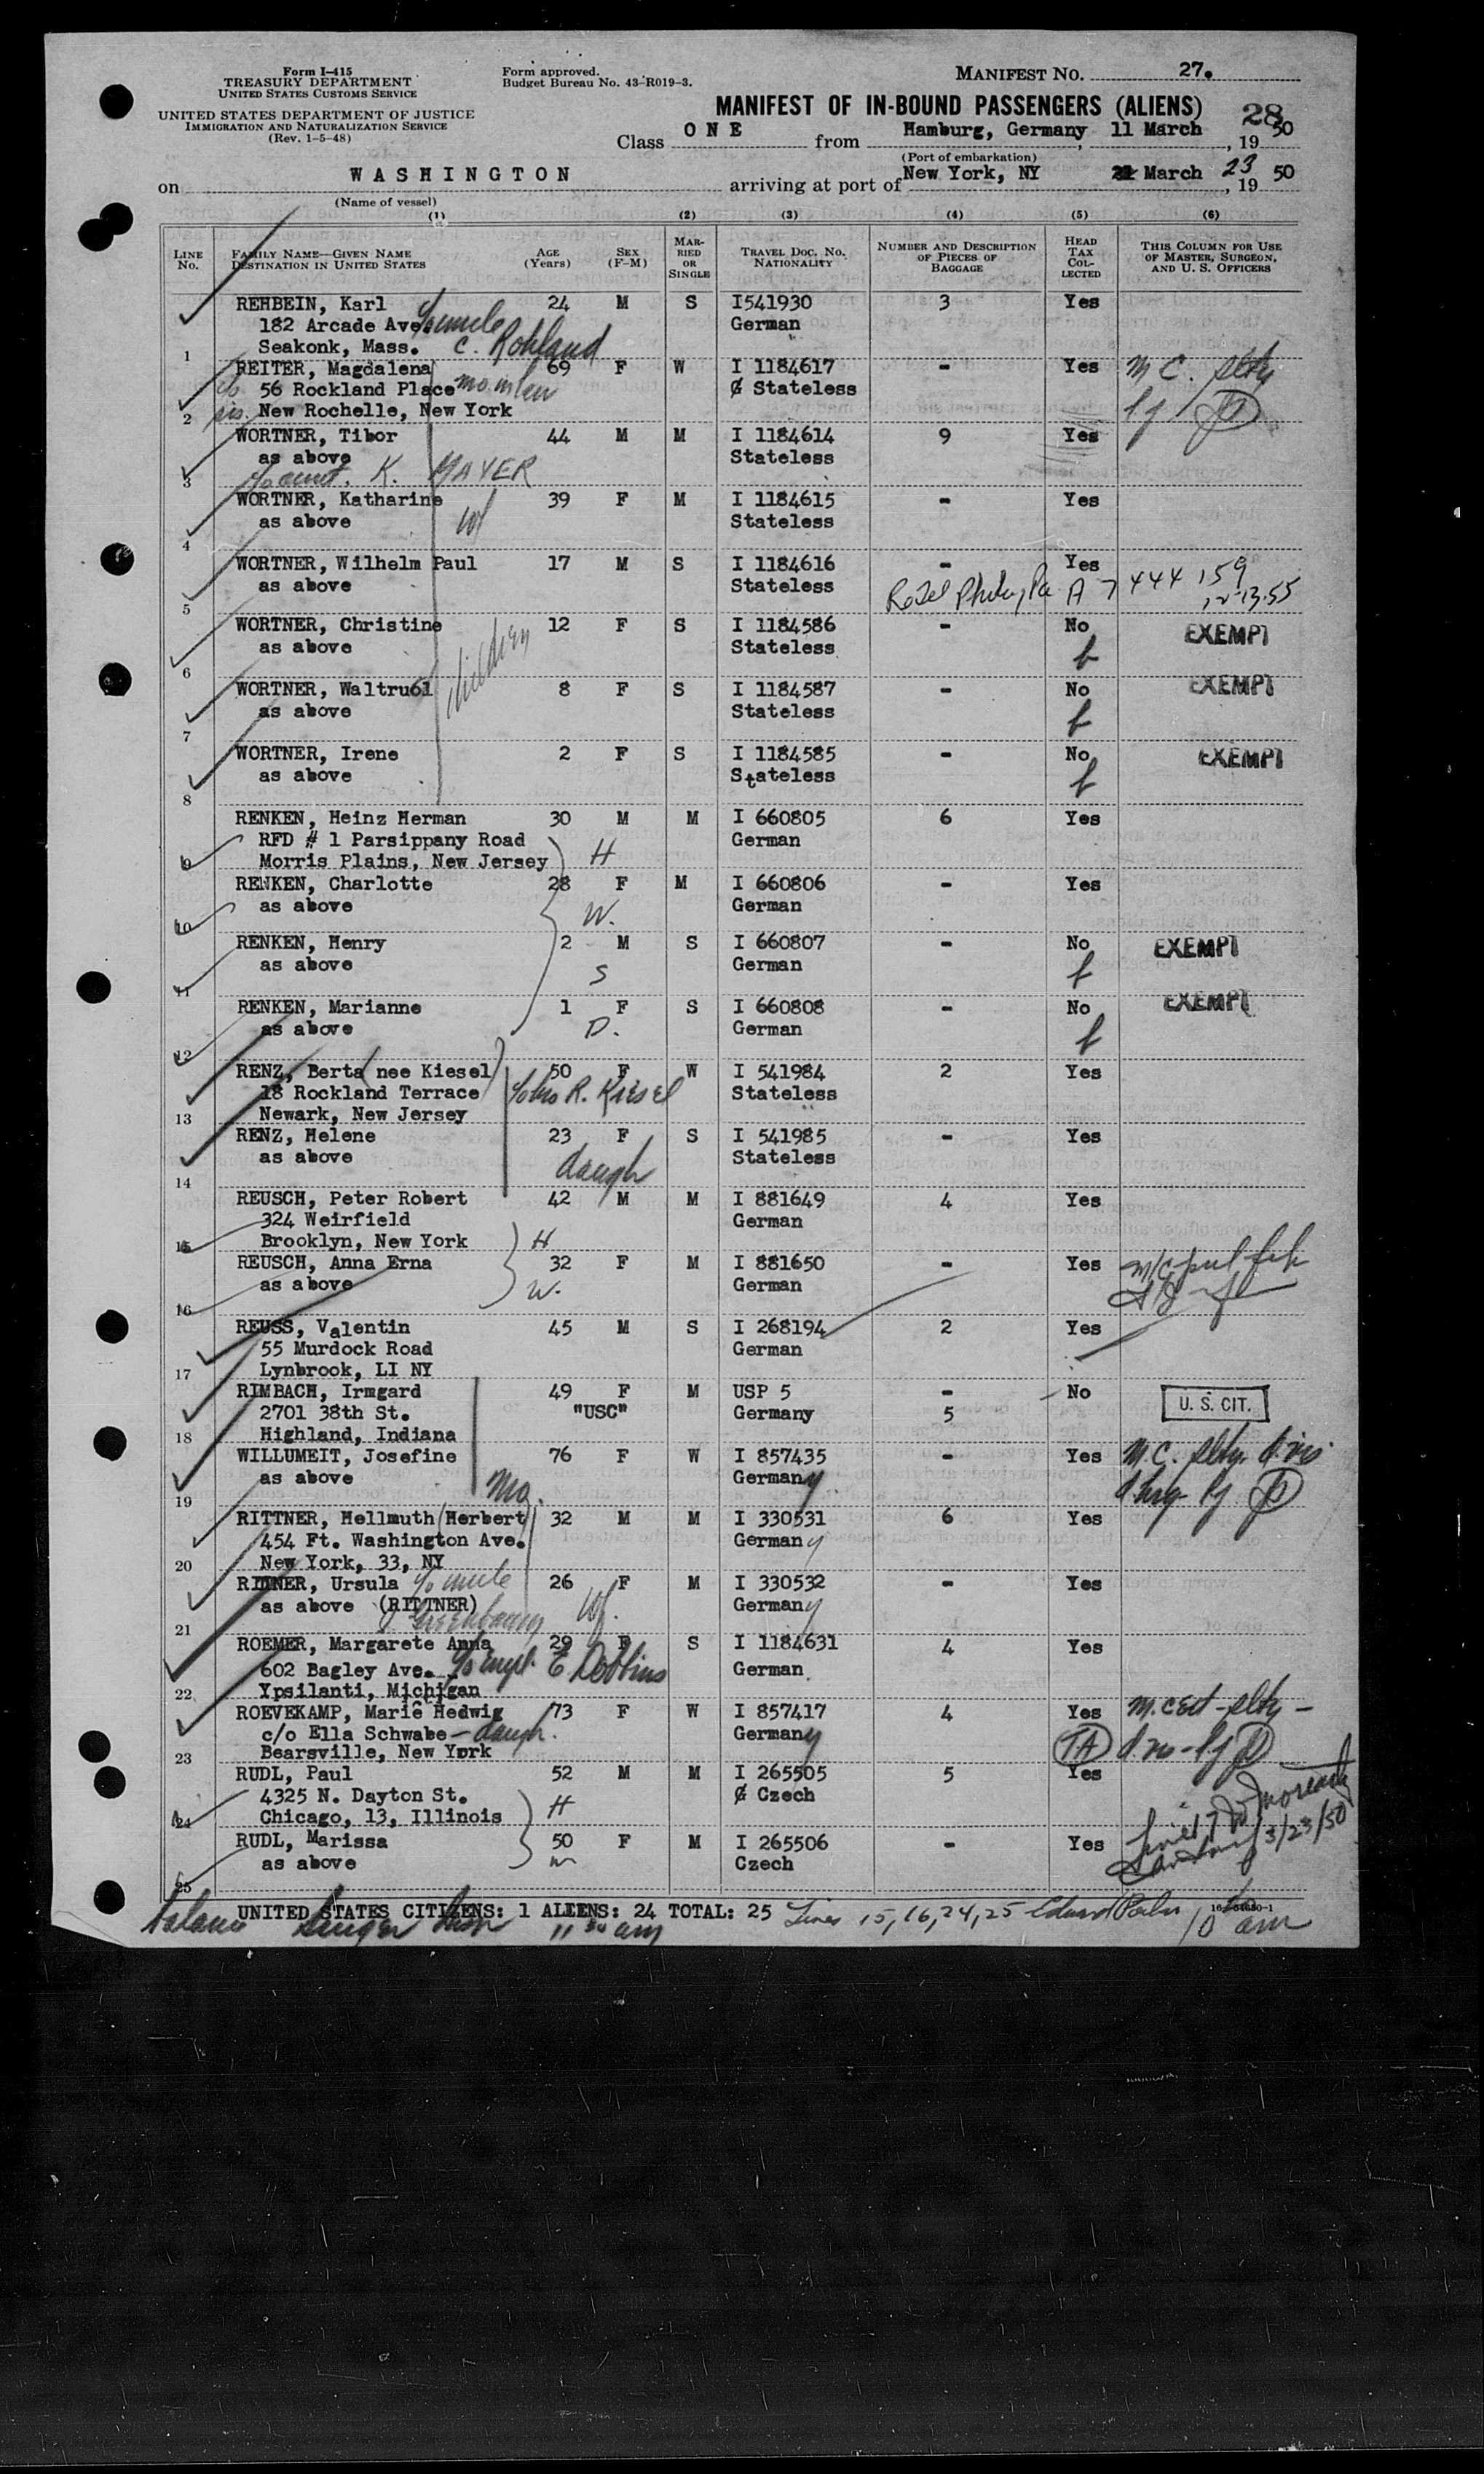 Form I-415
TREASURY DEPARTMENT
UNITED STATES CUSTOMS SERVICE
UNITED STATES DEPARTMENT OF JUSTICE
IMMIGRATION AND NATURALIZATION SERVICE
(Rev. 1-5-48)
Form approved.
Budget Bureau No. 43-R019-3.
MANIFEST NO. 27.
MANIFEST OF IN-BOUND PASSENGERS (ALIENS) 28
Class ONE from Hamburg, Germany, 11 March, 1950
(Port of embarkation)
on WASHINGTON arriving at port of New York, NY March 23, 1950
(Name of vessel)
(1) (2) (3) (4) (5) (6)
LINE NO. FAMILY NAME—GIVEN NAME DESTINATION IN UNITED STATES AGE (Years) SEX (F-M) MARRIED OR SINGLE TRAVEL DOC. NO. NATIONALITY NUMBER AND DESCRIPTION OF PIECES OF BAGGAGE HEAD TAX COLLECTED THIS COLUMN FOR USE OF MASTER, SURGEON, AND U. S. OFFICERS
REHBEIN, Karl 24 M S I541930 3 Yes
182 Arcade Ave. c/o uncle German
1 Seakonk, Mass. C. Rohland
REITER, Magdalena 69 F W I 1184617 - Yes M C. slty
56 Rockland Place mo in law Stateless
2 sis. New Rochelle, New York
WORTNER, Tibor 44 M M I 1184614 9 Yes
as above Stateless
3 c/o aunt. K. MAYER
WORTNER, Katharine 39 F M I 1184615 - Yes
as above Wf Stateless
4
WORTNER, Wilhelm Paul 17 M S I 1184616 - Yes
as above Stateless A7 444 159
5 12-13-55
WORTNER, Christine 12 F S I 1184586 - No EXEMPT
as above children Stateless
6
WORTNER, Waltrudl 8 F S I 1184587 - No EXEMPT
as above Stateless
7
WORTNER, Irene 2 F S I 1184585 - No EXEMPT
as above Stateless
8
RENKEN, Heinz Herman 30 M M I 660805 6 Yes
RFD # 1 Parsippany Road German
9 Morris Plains, New Jersey H
RENKEN, Charlotte 28 F M I 660806 - Yes
as above W. German
10
RENKEN, Henry 2 M S I 660807 - No EXEMPT
as above S German
11
RENKEN, Marianne 1 F S I 660808 - No EXEMPT
as above D. German
12
RENZ, Berta (nee Kiesel) 50 F W I 541984 2 Yes
18 Rockland Terrace c/o bro R. Kiesel Stateless
13 Newark, New Jersey
RENZ, Helene 23 F S I 541985 - Yes
as above daugh Stateless
14
REUSCH, Peter Robert 42 M M I 881649 4 Yes
324 Weirfield German
15 Brooklyn, New York H
REUSCH, Anna Erna 32 F M I 881650 - Yes
as above W. German
16
REUSS, Valentin 45 M S I 268194 2 Yes
55 Murdock Road German
17 Lynbrook, LI NY
RIMBACH, Irmgard 49 F M USP 5 - No
2701 38th St. "USC" Germany 5 U. S. CIT.
18 Highland, Indiana
WILLUMEIT, Josefine 76 F W I 857435 - Yes M.C. slty
as above Mo. Germany
19
RITTNER, Hellmuth (Herbert) 32 M M I 330531 6 Yes
454 Ft. Washington Ave. Germany
20 New York, 33, NY
RITTNER, Ursula c/o uncle 26 F M I 330532 - Yes
as above (RITTNER) Wf. Germany
21
ROEMER, Margarete Anna 29 F S I 1184631 4 Yes
602 Bagley Ave. c/o empl. E Dobbins German
22 Ypsilanti, Michigan
ROEVEKAMP, Marie Hedwig 73 F W I 857417 4 Yes M. cert - slty -
c/o Ella Schwabe - daugh. Germany TA
23 Bearsville, New York
RUDL, Paul 52 M M I 265505 5 Yes
4325 N. Dayton St. Czech
24 Chicago, 13, Illinois H
RUDL, Marissa 50 F M I 265506 - Yes 3/23/50
as above w Czech
25
UNITED STATES CITIZENS: 1 ALIENS: 24 TOTAL: 25 Lines 15, 16, 24, 25
11 30 am 10 am